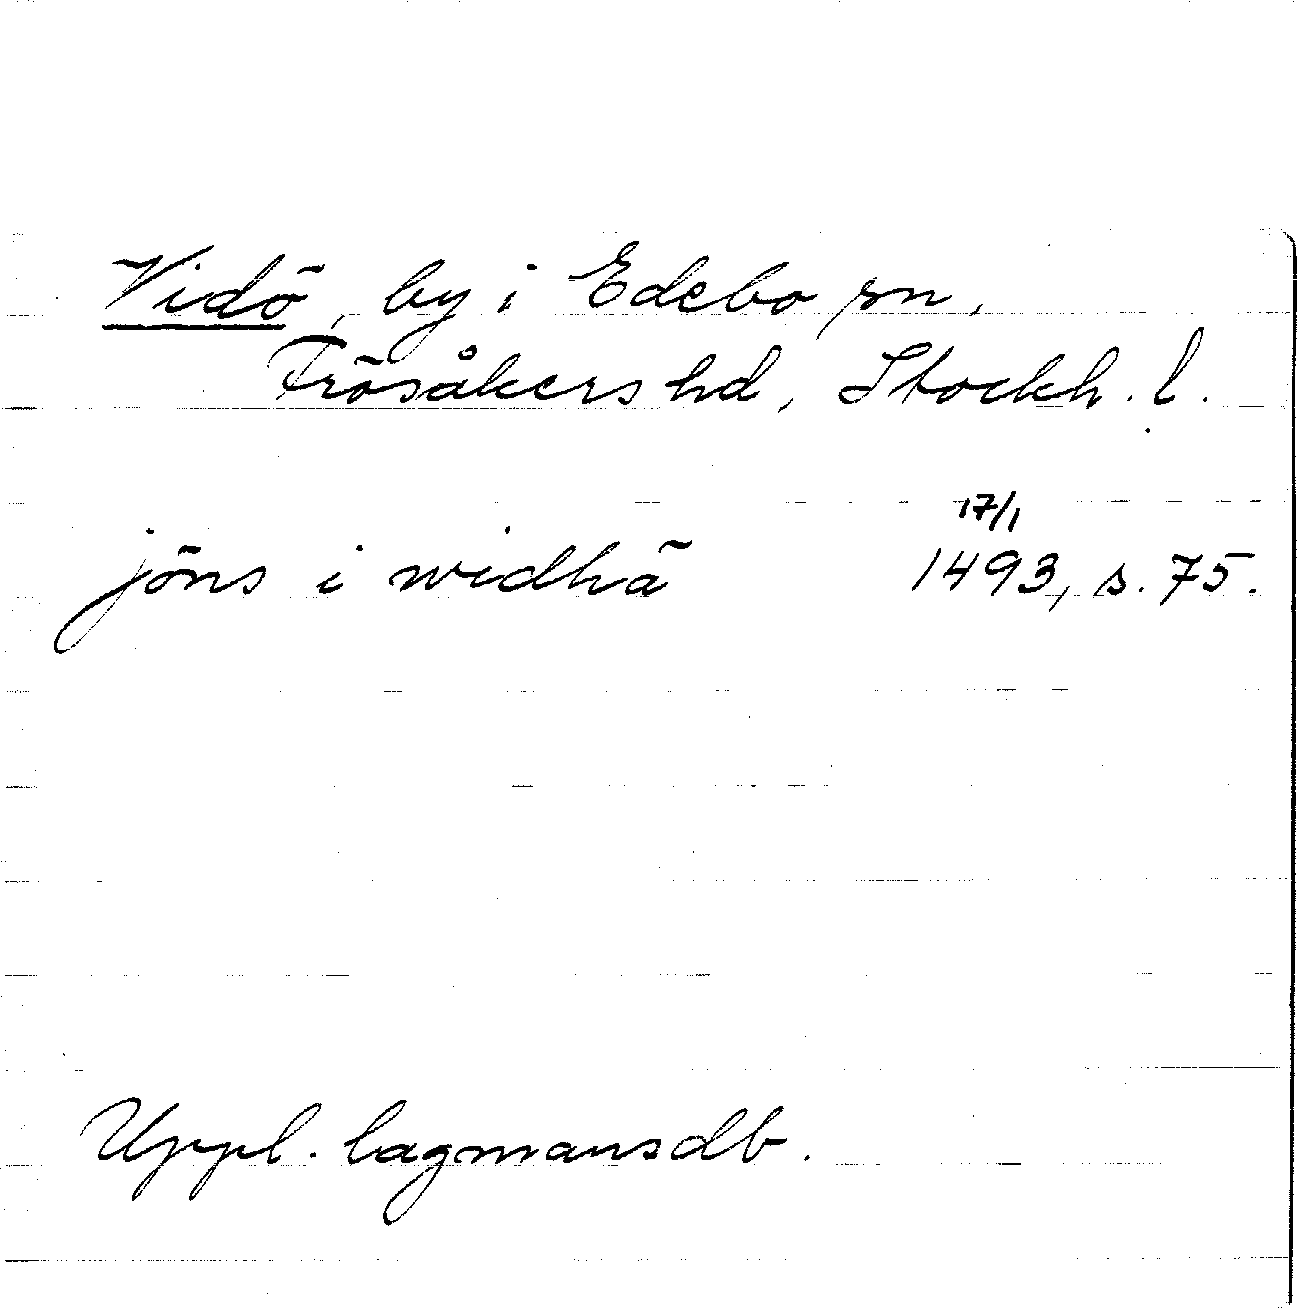 Vidö, by i Edebo sn,
Frösåkers hd, Stockh. l.
17/1
jöns i widhä 1493, s. 75.
Uppl. lagmansdb.